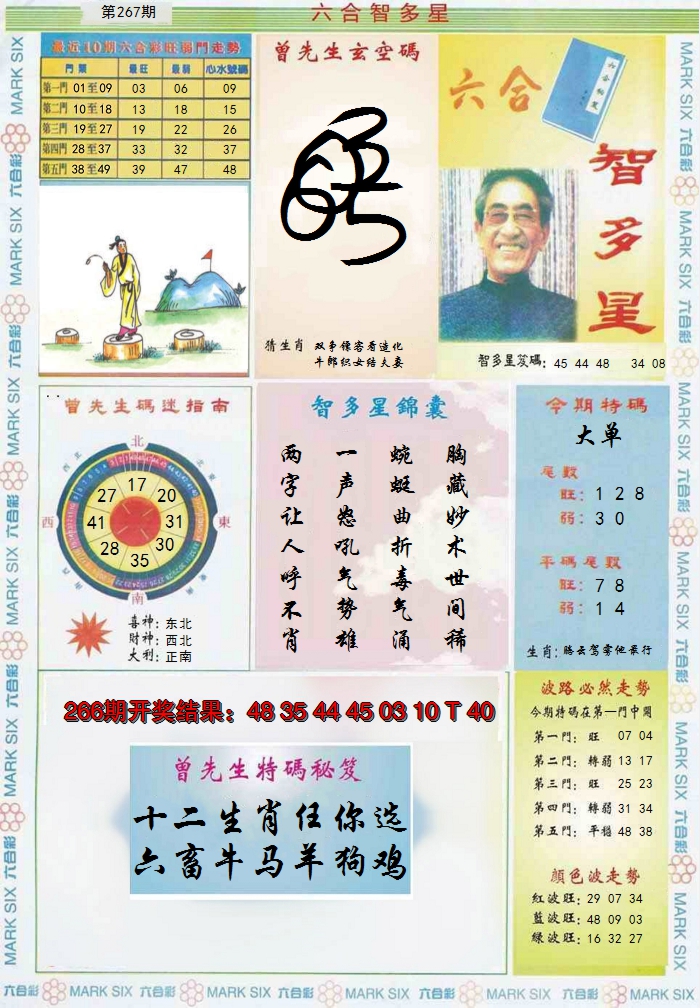 第267期
六合智多星
最近10期六合彩旺弱門走勢
門類 最旺 最弱 心水號碼
第一門 01至09 03 06 09
第二門 10至18 13 18 15
第三門 19至27 19 22 26
第四門 28至37 33 32 37
第五門 38至49 39 47 48
曾先生玄空碼
猜生肖 双争镖客看造化
牛郎织女结夫妻
六合
智多星
智多星笈碼: 45 44 48 34 08
曾先生碼迷指南
北
東
南
西
17
20
31
30
35
28
41
27
喜神: 东北
財神: 西北
大利: 正南
智多星錦囊
胸藏妙术世间稀
蜿蜒曲折毒气涌
一声怒吼气势雄
两字让人呼不肖
今期特碼
大单
尾數
旺: 1 2 8
弱: 3 0
平碼尾數
旺: 7 8
弱: 1 4
生肖: 腾云驾雾他最行
266期开奖结果: 48 35 44 45 03 10 T 40
曾先生特碼秘笈
十二生肖任你选
六畜牛马羊狗鸡
波路必然走勢
今期特碼在第一門中開
第一門: 旺 07 04
第二門: 轉弱 13 17
第三門: 旺 25 23
第四門: 轉弱 31 34
第五門: 平穩 48 38
顏色波走勢
紅波旺: 29 07 34
藍波旺: 48 09 03
绿波旺: 16 32 27
六合彩 MARK SIX